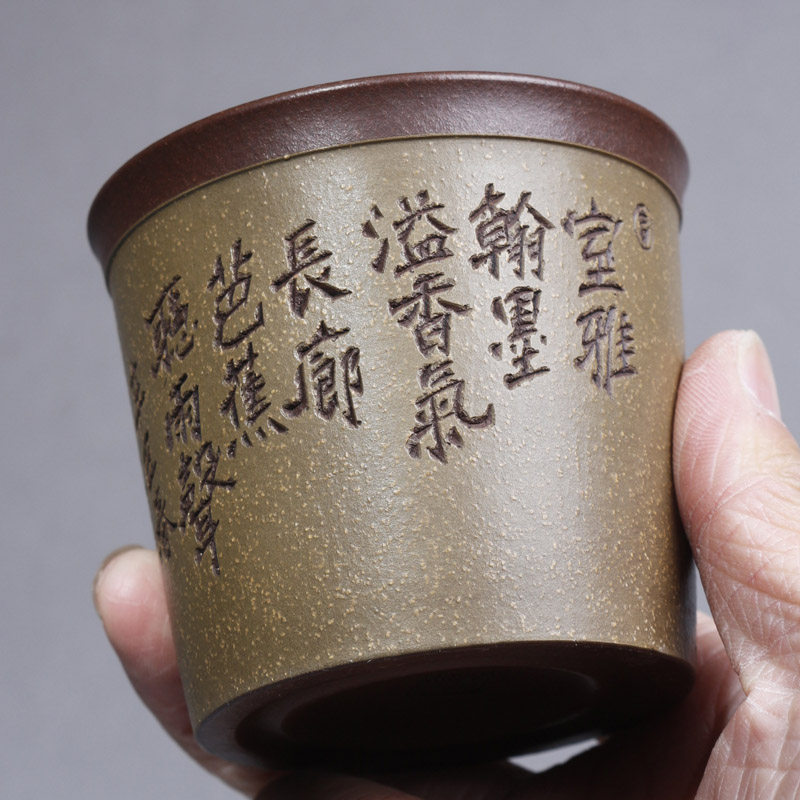 室雅
翰墨
溢香氣
長廊
芭蕉
聽雨聲